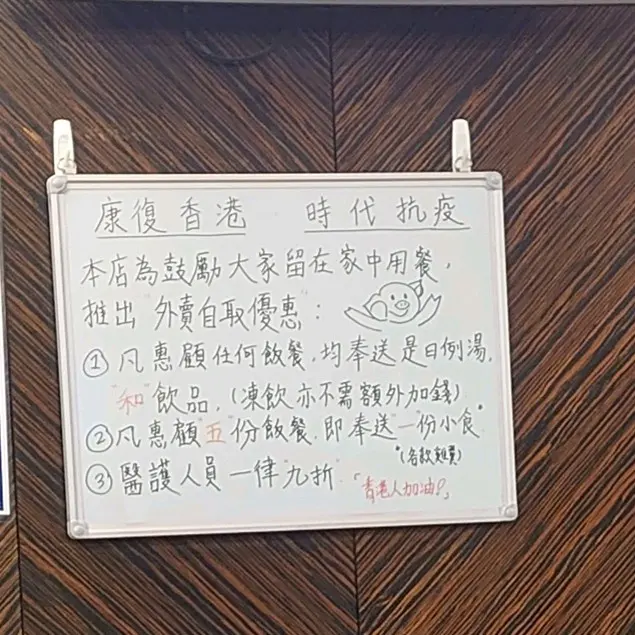 康復香港 時代抗疫
本店為鼓勵大家留在家中用餐,
推出"外賣自取優惠":
① 凡惠顧任何飯餐,均奉送是日例湯,
"和"飲品,(凍飲亦不需額外加錢)
② 凡惠顧"五"份飯餐,即奉送"一"份小食*
*(各款
③ 醫護人員一律"九折"
「香港人加油!」